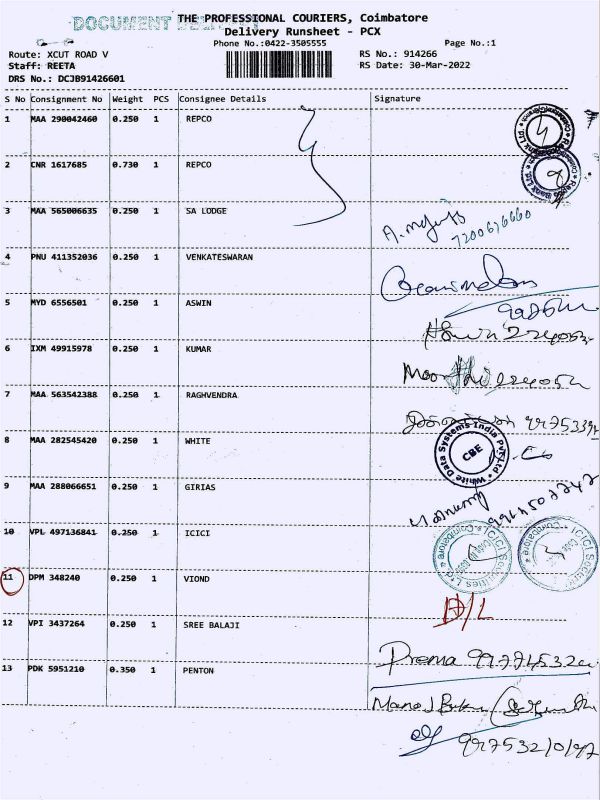 DOCUMENT DELIVERY
THE PROFESSIONAL COURIERS, Coimbatore
Delivery Runsheet - PCX
Phone No.:0422-3505555
Page No.:1
Route: XCUT ROAD V
Staff: REETA
DRS No.: DCJB91426601
RS No.: 914266
RS Date: 30-Mar-2022
S No Consignment No Weight PCS Consignee Details Signature
1 MAA 290042460 0.250 1 REPCO
2 CNR 1617685 0.730 1 REPCO
3 MAA 565006635 0.250 1 SA LODGE
7200676660
4 PNU 411352036 0.250 1 VENKATESWARAN
5 MYD 6556501 0.250 1 ASWIN
6 IXM 49915978 0.250 1 KUMAR
7 MAA 563542388 0.250 1 RAGHVENDRA
8 MAA 282545420 0.250 1 WHITE
White Data Systems India Pvt Ltd
CBE
9 MAA 288066651 0.250 1 GIRIAS
10 VPL 497136841 0.250 1 ICICI
ICICI Securities Ltd
Coimbatore
11 DPM 348240 0.250 1 VIOND
D/L
12 VPI 3437264 0.250 1 SREE BALAJI
Prema
13 PDK 5951210 0.350 1 PENTON